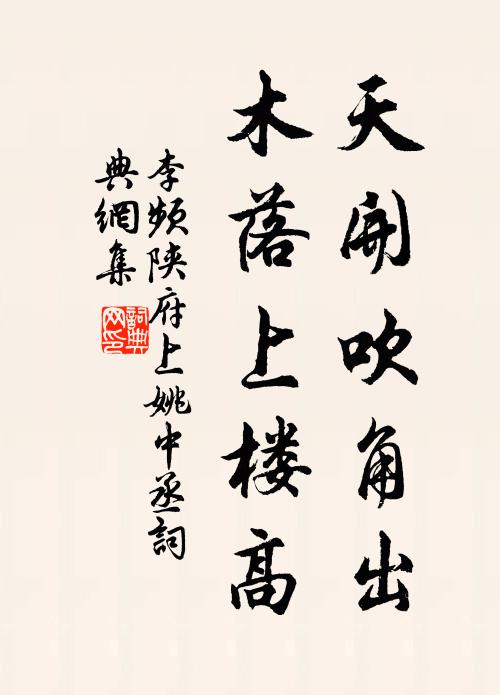 天開吹角出
木落上楼高
李頻陝府上姚中丞詞
典網集
詞典网印